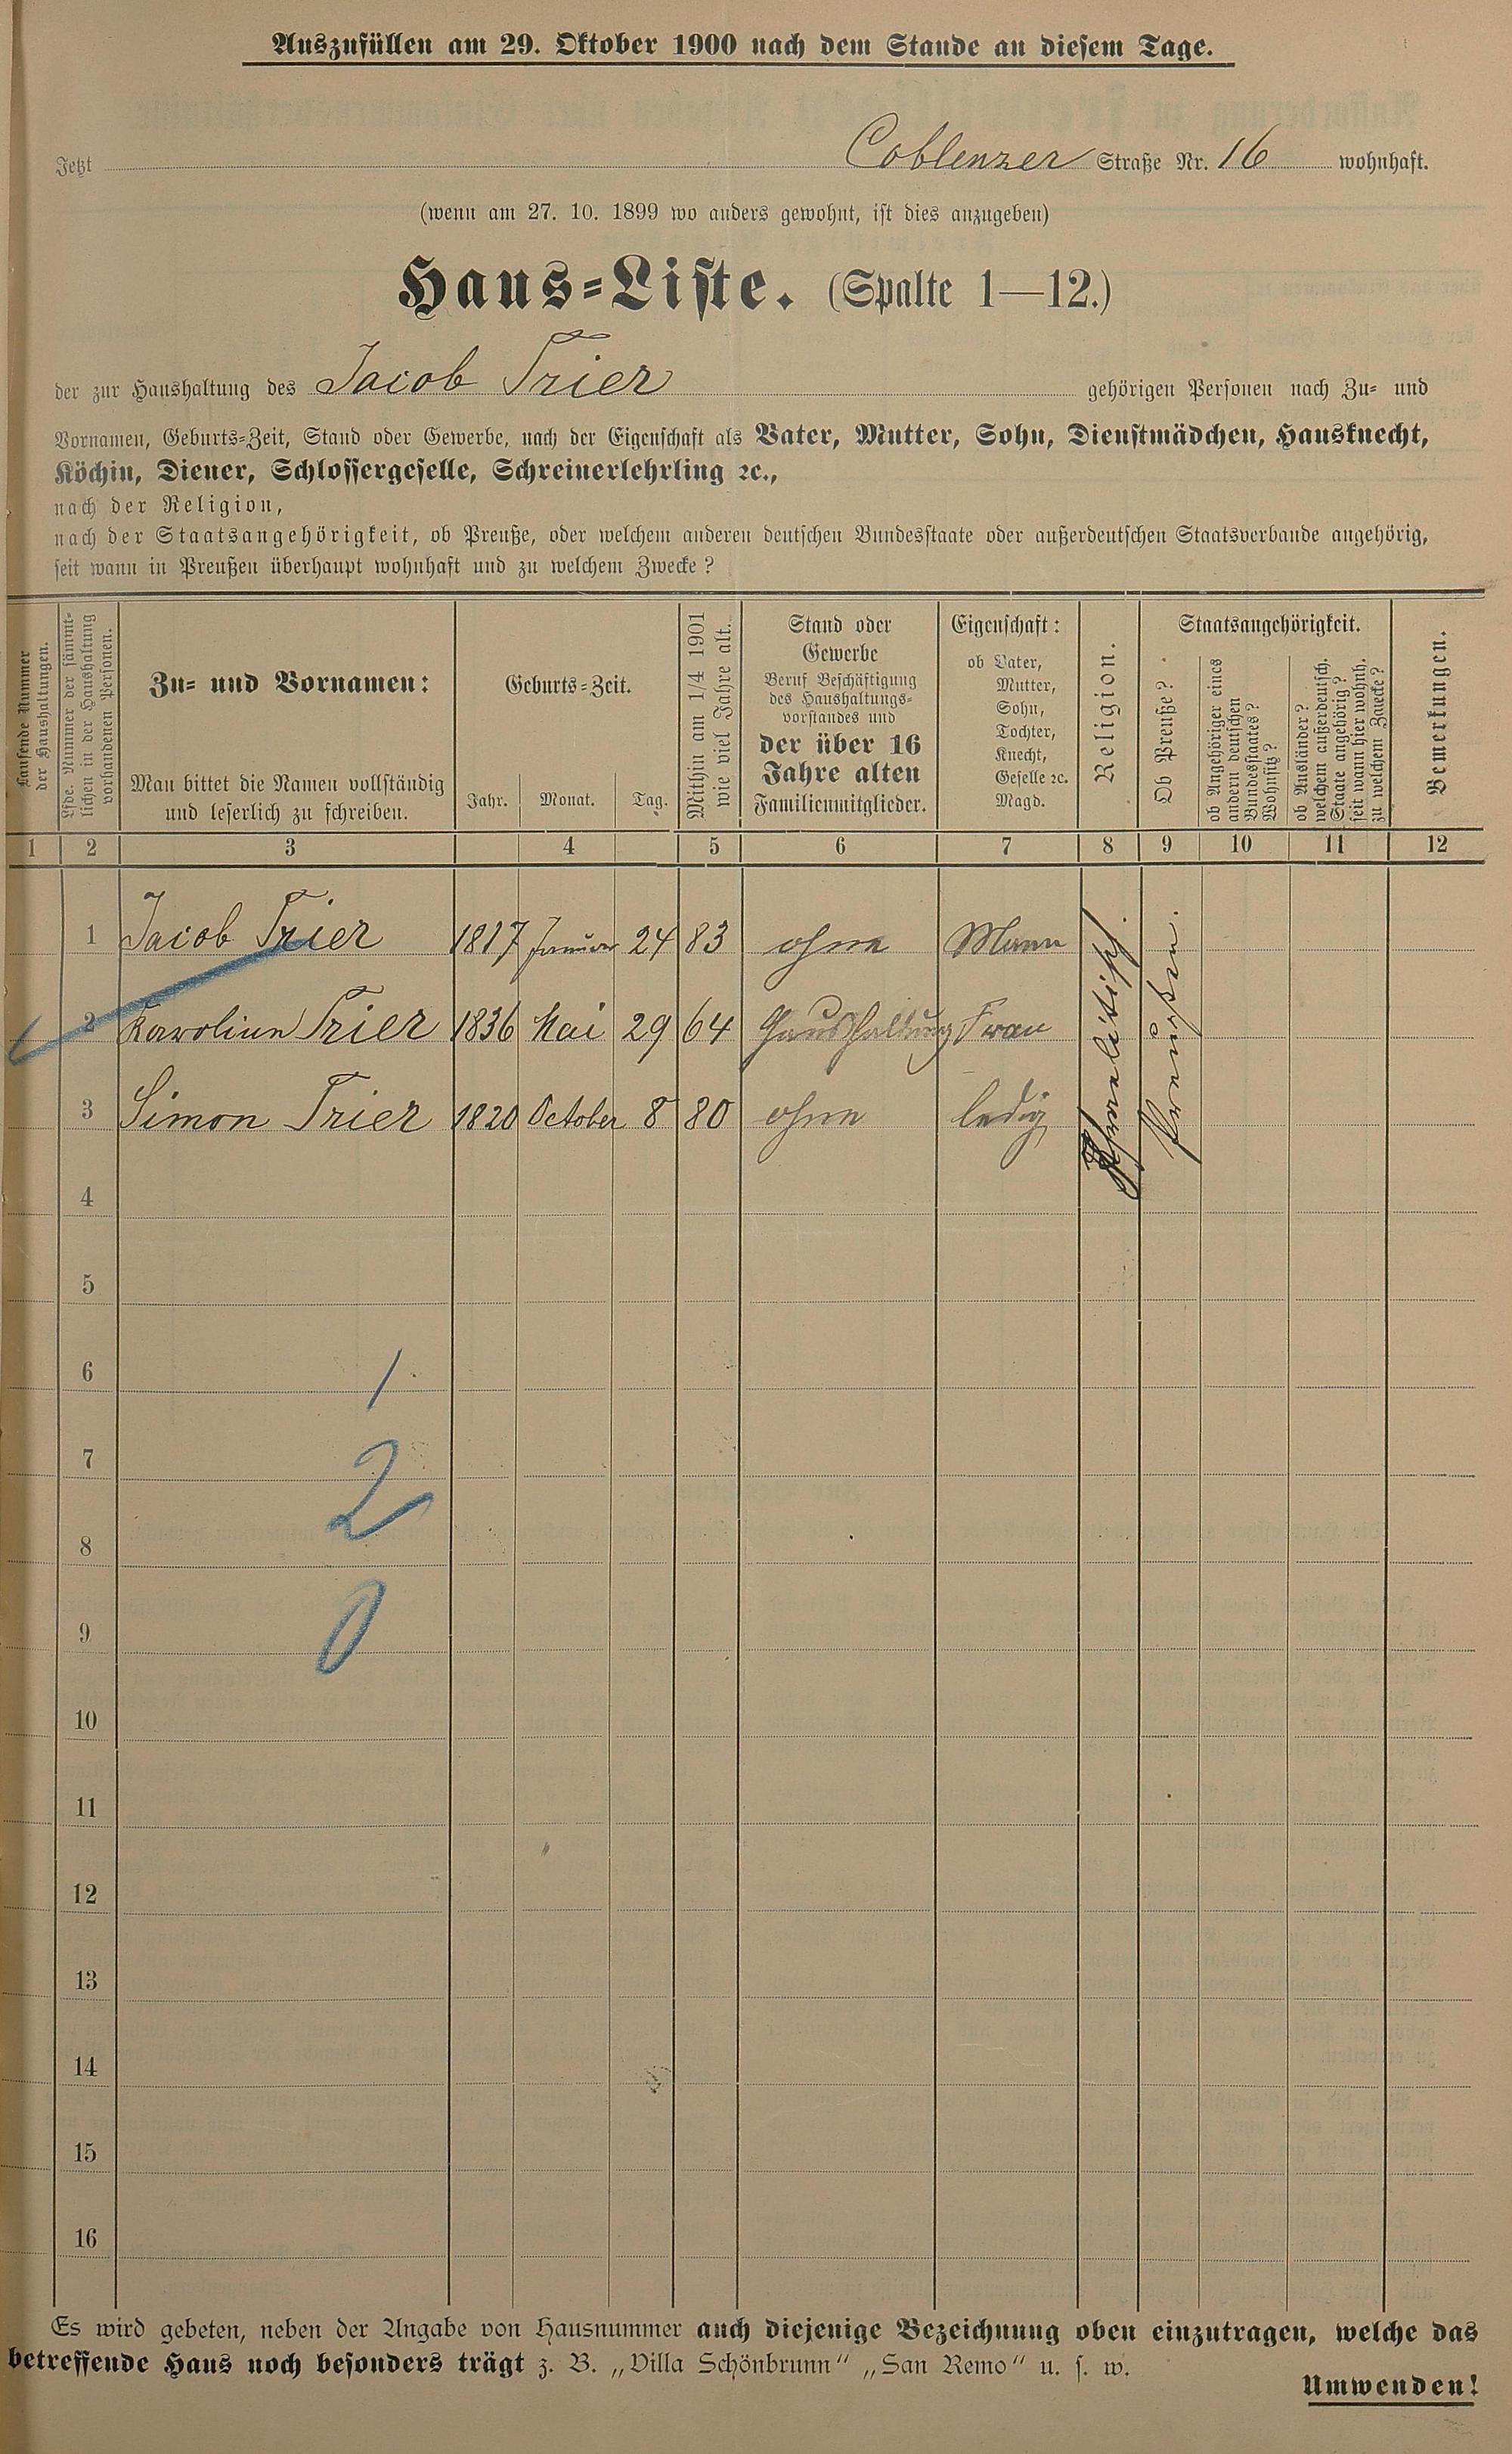 Auszufüllen am 29. Oktober 1900 nach dem Stande an diesem Tage.
Jetzt Coblenzer Straße Nr. 16 wohnhaft.
(wenn am 27. 10. 1899 wo anders gewohnt, ist dies anzugeben)
Haus-Liste. (Spalte 1—12.)
der zur Haushaltung des Jacob Trier gehörigen Personen nach Zu- und
Vornamen, Geburts-Zeit, Stand oder Gewerbe, nach der Eigenschaft als Vater, Mutter, Sohn, Dienstmädchen, Hausknecht,
Köchin, Diener, Schlossergeselle, Schreinerlehrling ꝛc.,
nach der Religion,
nach der Staatsangehörigkeit, ob Preuße, oder welchem anderen deutschen Bundesstaate oder außerdeutschen Staatsverbande angehörig,
seit wann in Preußen überhaupt wohnhaft und zu welchem Zwecke?
Laufende Nummer
der Haushaltungen.
Lfde. Nummer der sämmt-
lichen in der Haushaltung
vorhandenen Personen.
Zu- und Vornamen:
Man bittet die Namen vollständig
und leserlich zu schreiben.
Geburts-Zeit.
Jahr. Monat. Tag.
Mithin am 1/4 1901
wie viel Jahre alt.
Stand oder
Gewerbe
Beruf Beschäftigung
des Haushaltungs-
vorstandes und
der über 16
Jahre alten
Familienmitglieder.
Eigenschaft:
ob Vater,
Mutter,
Sohn,
Tochter,
Knecht,
Geselle ꝛc.
Magd.
Religion.
Staatsangehörigkeit.
Ob Preuße?
ob Angehöriger eines
andern deutschen
Bundesstaates?
Wohnsitz?
ob Ausländer?
welchem außerdeutsch.
Staate angehörig?
seit wann hier wohnh.
zu welchem Zwecke?
Bemerkungen.
1 2 3 4 5 6 7 8 9 10 11 12
1 Jacob Trier 1817 Januar 24 83 ohne Mann
2 Karoline Trier 1836 Mai 29 64 Haushaltung Frau
3 Simon Trier 1820 October 8 80 ohne ledig
Ißraelitisch.
Preußen.
4
5
6 1
7
2
8
9 0
10
11
12
13
14
15
16
Es wird gebeten, neben der Angabe von Hausnummer auch diejenige Bezeichnung oben einzutragen, welche das
betreffende Haus noch besonders trägt z. B. „Villa Schönbrunn“ „San Remo“ u. s. w.
Umwenden!